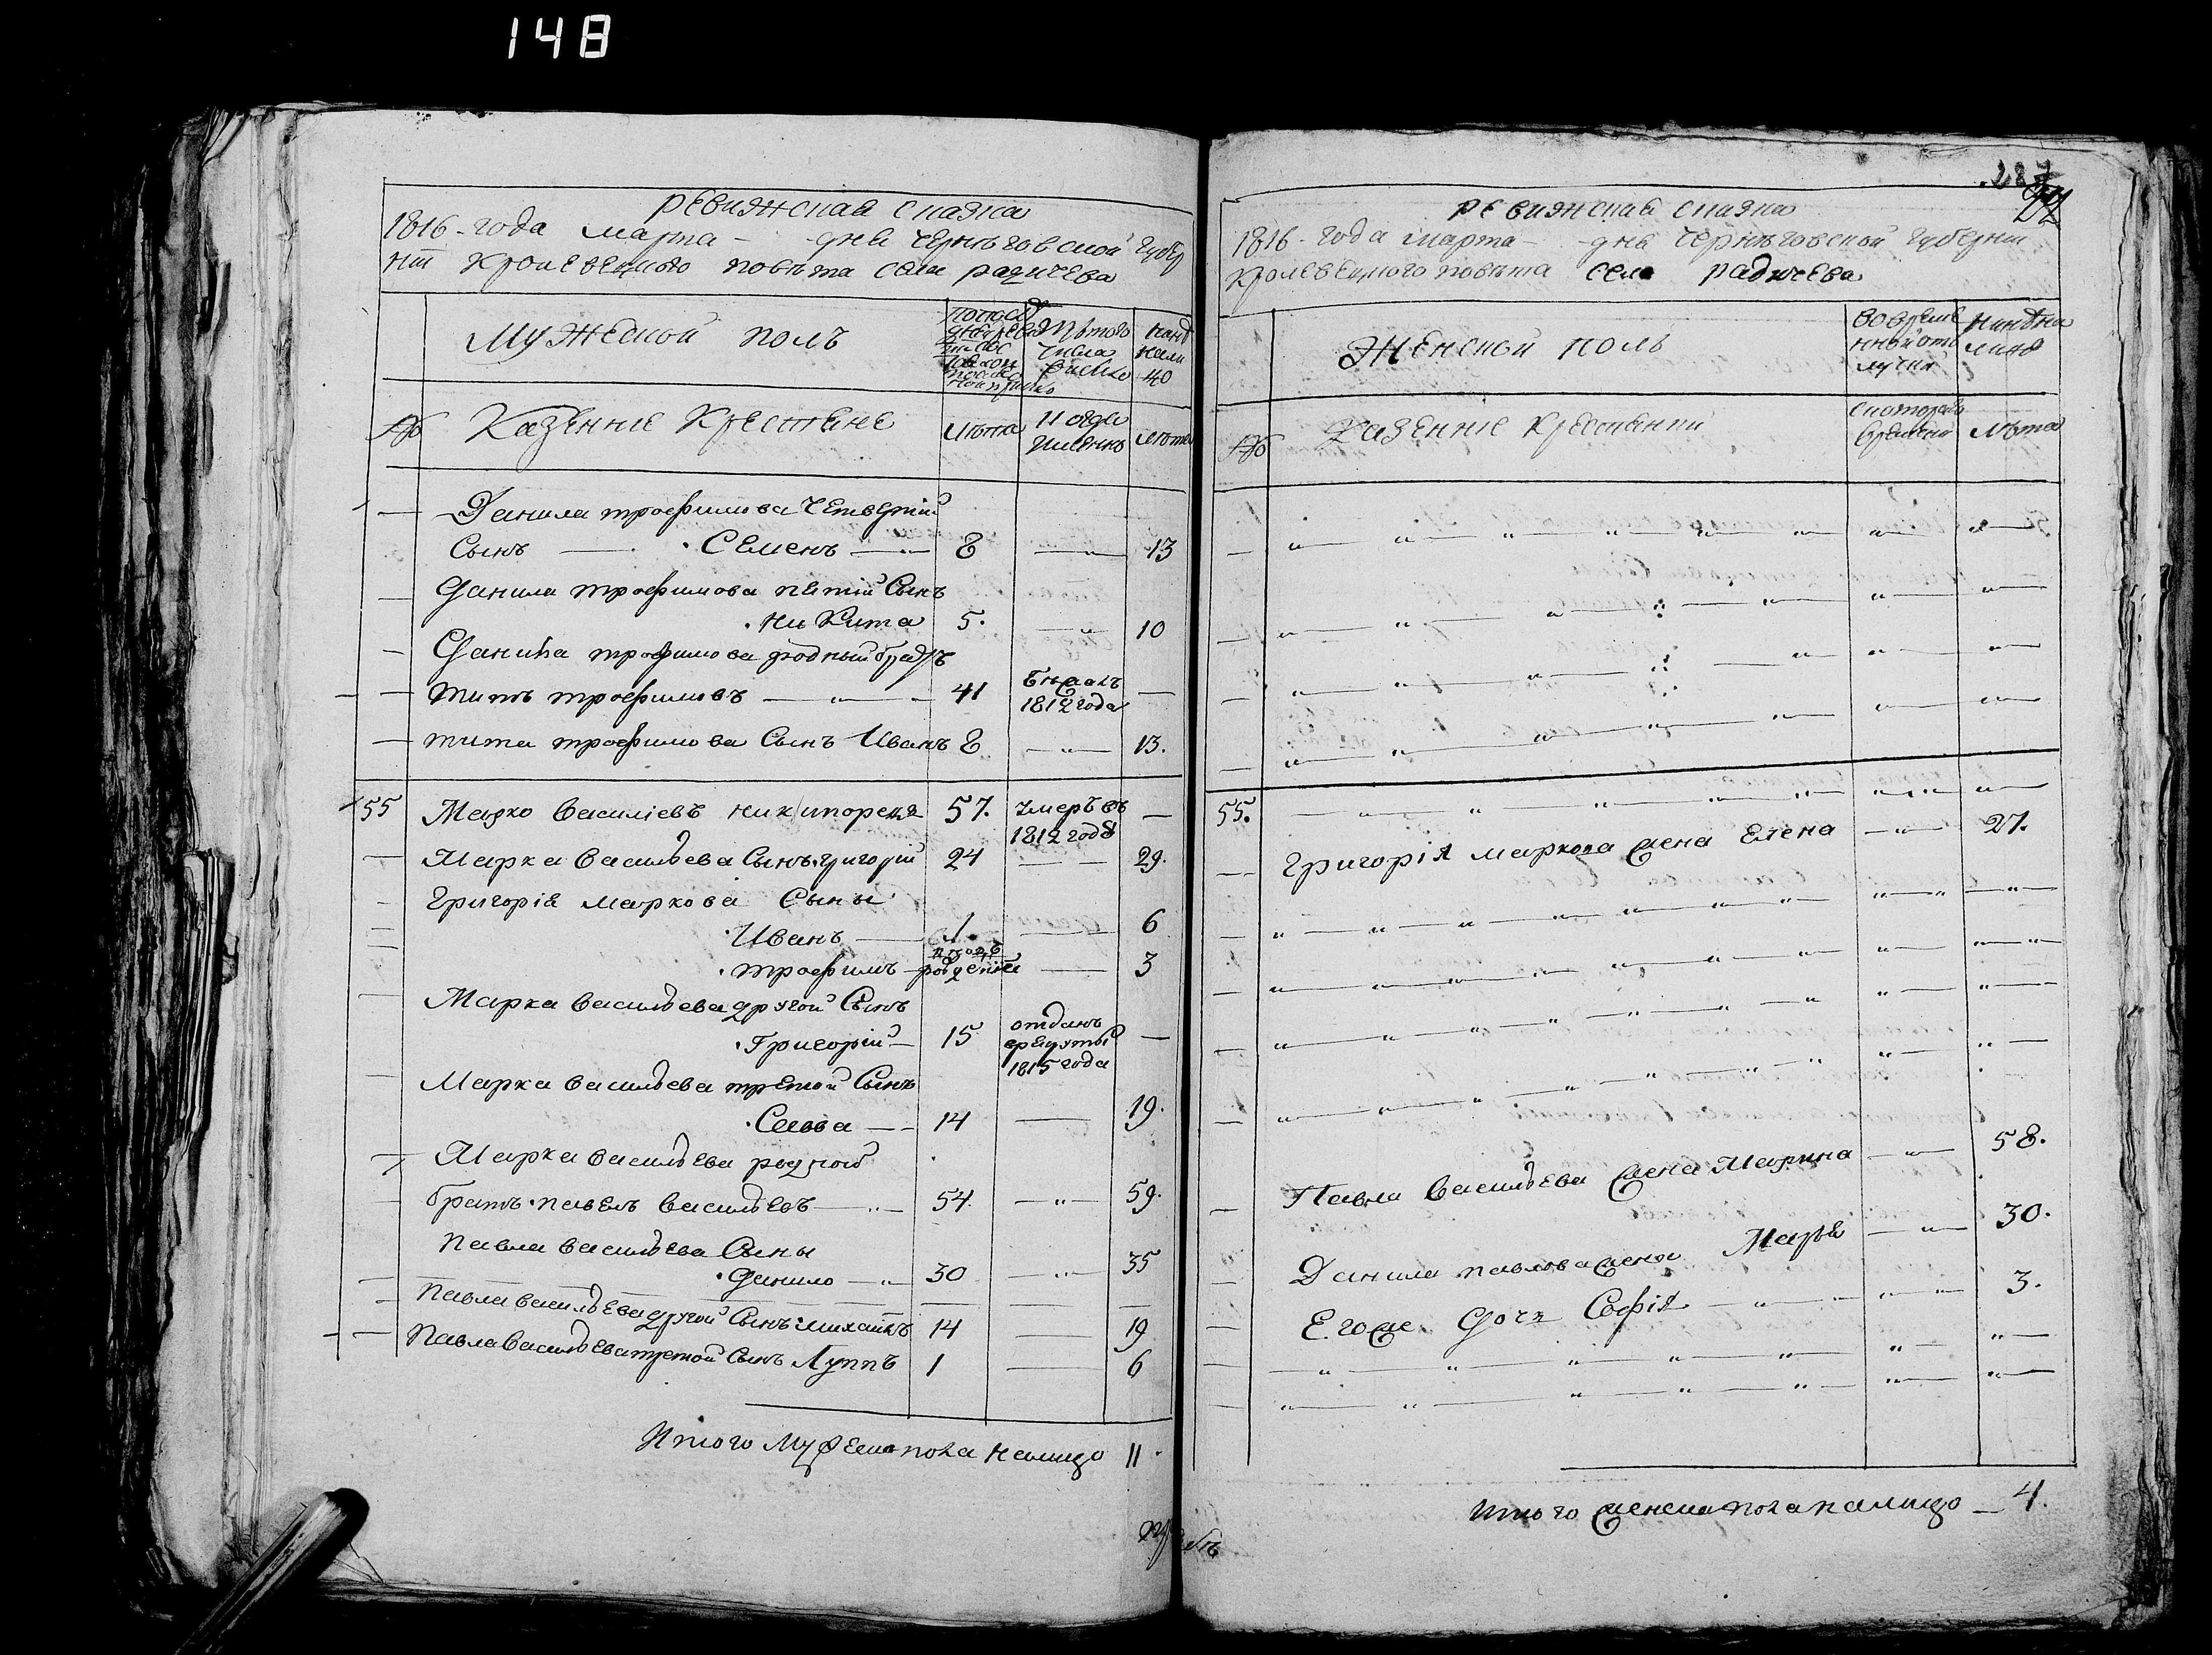 148
ревижская сказка
1816 - года марта - дня Черниговской губер
нии кролевецкого повета села радичева
Мужеской полъ
№ Казенние Крестяне лета и когда именно лета
Данила трофимова Четвертий
Сынъ — Семенъ — 8 — 13
Данила трофимова пятий Сынъ
Никита 5. — 10
Данила трофимова родный братъ
титъ трофимовъ — 41 1812 года —
тита трофимова Сынъ Иванъ 8 — 13.
55 Марко Василіевъ 57. Умеръ въ —
1812 году
Марка Васильева Сынъ григорій 24 — 29.
Григорія маркова Сыны
Иванъ — 1. — 6
трофимъ — — 3
Марка Васильева другой Сынъ
Григорій — 15 отданъ —
врекруты
1815 года
Марка Васильева третой Сынъ
Савва — 14 — 19.
Марка Васильева родной
братъ павелъ Васильевъ — 54. — 59.
павла Васильева Сыны
Данило — 30 — 35
павла Васильева другой Сынъ михайлъ 14 — 19
павла Васильева третой Сынъ Луппъ 1 — 6
Итого Муже пола налицо 11.
287
ревижская сказка
1816 - года марта - дня Черниговской губернии
кролевецкого повета села радичева
Женской полъ
Вовреме
нной отъ
лучки
Ныне на
лицо
№ Казенние Крестянки
скоторого
времени
лета
55.
Григорія маркова жена Елена — 27.
Павла Васильева жена Марина — 58.
Данила павлова жена Марья — 30.
Егоже Дочъ Софія — 3.
Итого женска пола налицо — 4.